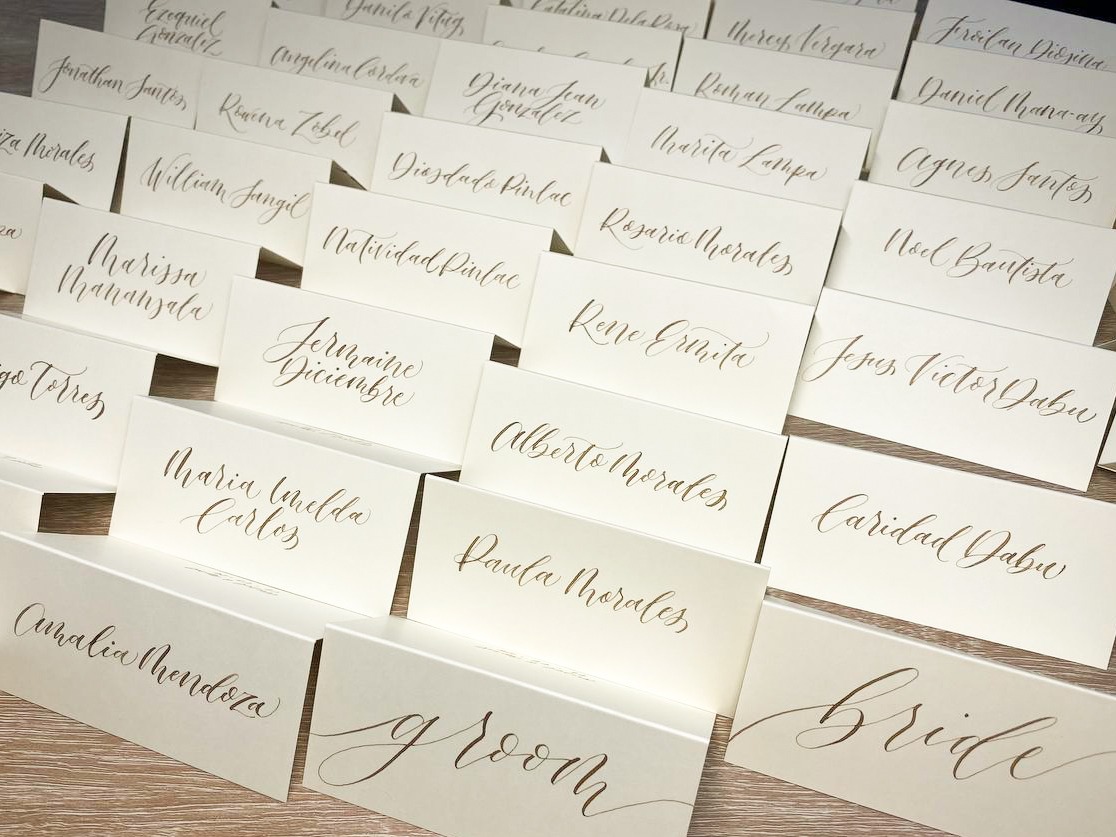 Ezequiel
Gonzalez
Danilo Vitug
Catalina Dela Rosa
Mercy Vergara
Froilan Diosina
Jonathan Santos
Angelina Cordova
Diana Jean
Gonzalez
Jr.
Roman Lampa
Daniel Mana-ay
Rowena Zobel
Marita Lampa
Agnes Santos
iza Morales
William Sangil
Diosdado Pinlac
Rosario Morales
Noel Bautista
za
Marissa
Manansala
Natividad Pinlac
Rene Ermita
Jesus Victor Dabu
go Torres
Jermaine
Diciembre
Alberto Morales
Caridad Dabu
Maria Imelda
Carlos
Paula Morales
Amalia Mendoza
groom
bride